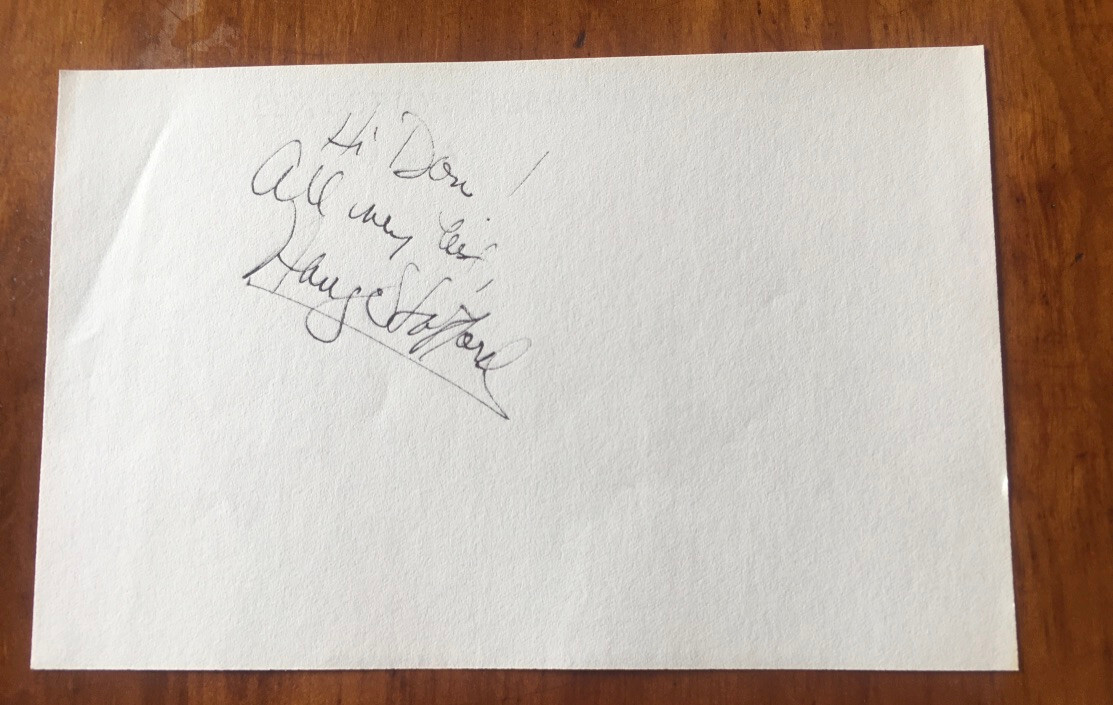 Hi Don!
All my best,
Stafford